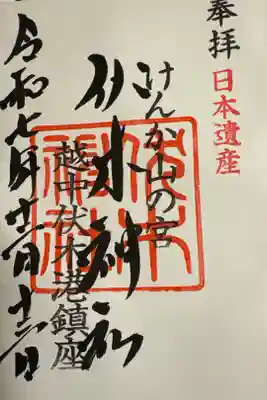 奉拝
日本遺産
けんか山の宮
伏木神社
越中伏木港鎮座
令和七年十二月十六日